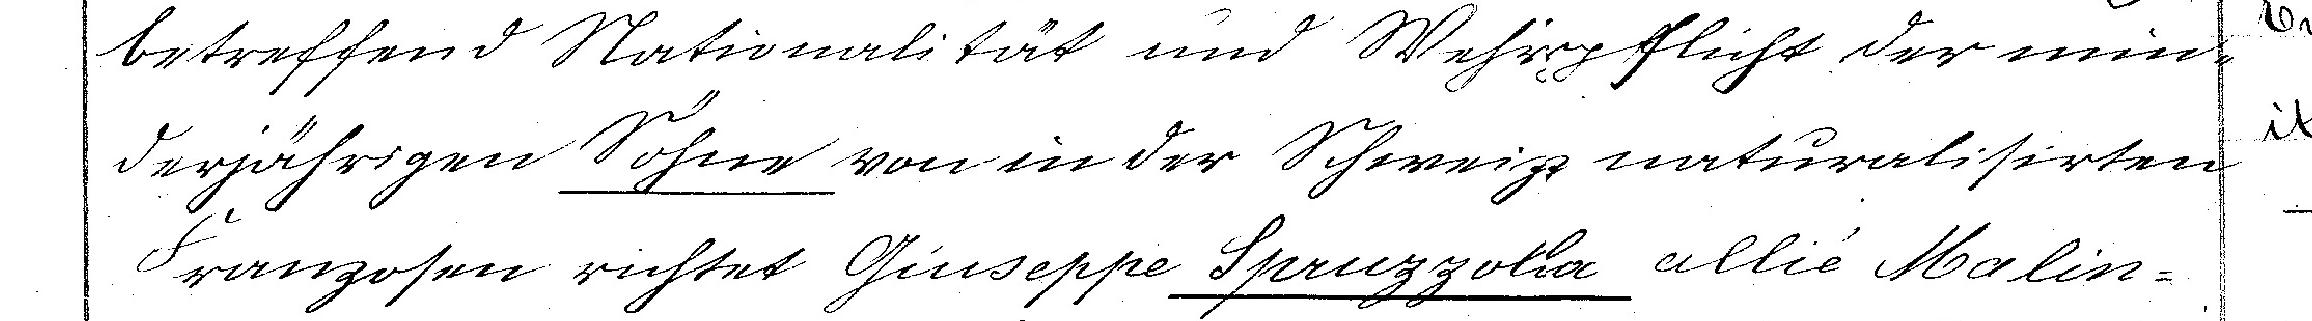 betreffend Nationalität und Wehrpflicht der min-
derjährigen Söhne von in der Schweiz naturalisirten
Franzosen richtet Giuseppe Spruzzola allié Malin-